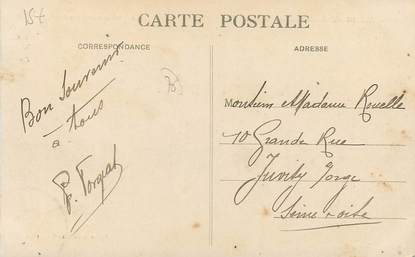 15€
CARTE POSTALE
CORRESPONDANCE
ADRESSE
Bon Souvenir
à tous
Monsieur Madame Rouelle
10 Grande Rue
Juvisy Sorge
Seine & Oise